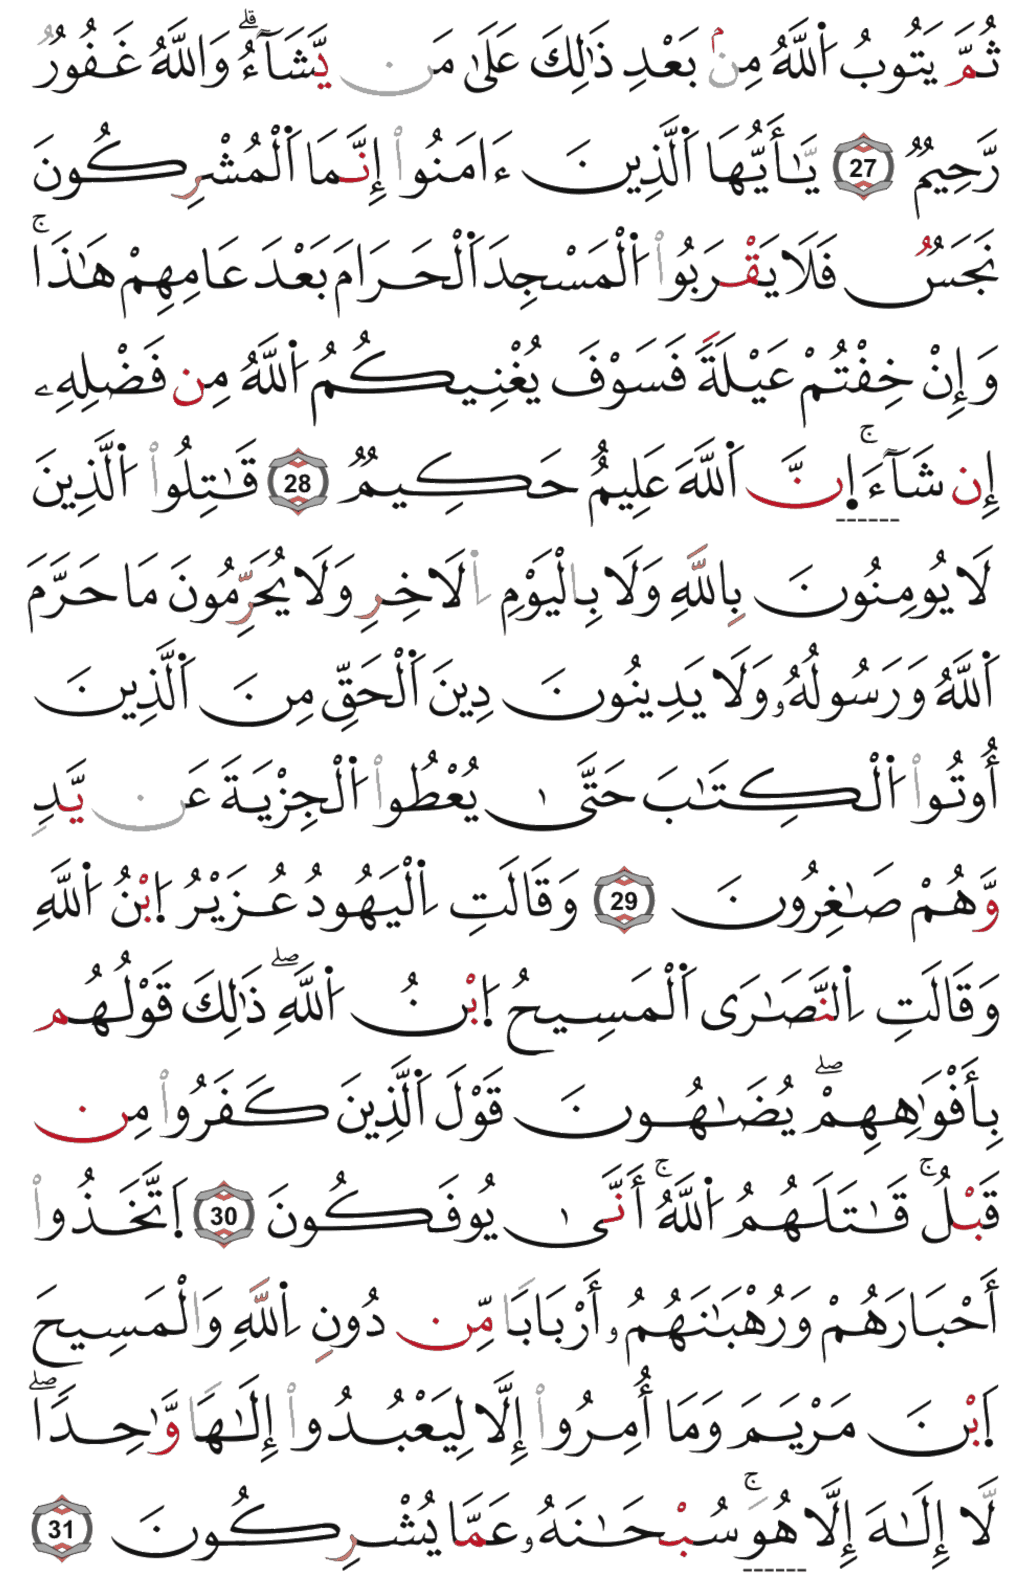 ثُمَّ يَتُوبُ اُ۬للَّهُ مِنۢ بَعْدِ ذَٰلِكَ عَلَىٰ مَنْ يَّشَآءُۖ وَاللَّهُ غَفُورٌ
رَّحِيمٌ 27 يَٰٓأَيُّهَا اَ۬لَّذِينَ ءَامَنُواْ إِنَّمَا اَ۬لْمُشْرِكُونَ
نَجَسٌ فَلَا يَقْرَبُواْ اُ۬لْمَسْجِدَ اَ۬لْحَرَامَ بَعْدَ عَامِهِمْ هَٰذَاۚ
وَإِنْ خِفْتُمْ عَيْلَةً فَسَوْفَ يُغْنِيكُمُ اُ۬للَّهُ مِن فَضْلِهِۦ
إِن شَآءَۚ اِ۪نَّ اَ۬للَّهَ عَلِيمٌ حَكِيمٌ 28 قَٰتِلُواْ اُ۬لَّذِينَ
لَا يُومِنُونَ بِاللَّهِ وَلَا بِالْيَوْمِ اِ۬لَاخِرِ وَلَا يُحَرِّمُونَ مَا حَرَّمَ
اَ۬للَّهُ وَرَسُولُهُۥ وَلَا يَدِينُونَ دِينَ اَ۬لْحَقِّ مِنَ اَ۬لَّذِينَ
أُوتُواْ اُ۬لْكِتَٰبَ حَتَّىٰ يُعْطُواْ اُ۬لْجِزْيَةَ عَنْ يَّدٍ
وَّهُمْ صَٰغِرُونَ 29 وَقَالَتِ اِ۬لْيَهُودُ عُزَيْرُ اُ۪بْنُ اُ۬للَّهِ
وَقَالَتِ اِ۬لنَّصَٰرَى اَ۬لْمَسِيحُ اُ۪بْنُ اُ۬للَّهِۖ ذَٰلِكَ قَوْلُهُم
بِأَفْوَٰهِهِمْۖ يُضَٰهُونَ قَوْلَ اَ۬لَّذِينَ كَفَرُواْ مِن
قَبْلُۚ قَٰتَلَهُمُ اُ۬للَّهُۚ أَنَّىٰ يُوفَكُونَ 30 اَ۪تَّخَذُواْ
أَحْبَارَهُمْ وَرُهْبَٰنَهُمُۥ أَرْبَابًا مِّن دُونِ اِ۬للَّهِ وَالْمَسِيحَ
اَ۪بْنَ مَرْيَمَ وَمَا أُمِرُواْ إِلَّا لِيَعْبُدُواْ إِلَٰهًا وَّٰحِدًاۖ
لَّا إِلَٰهَ إِلَّا هُوَۚ سُبْحَٰنَهُۥ عَمَّا يُشْرِكُونَ 31